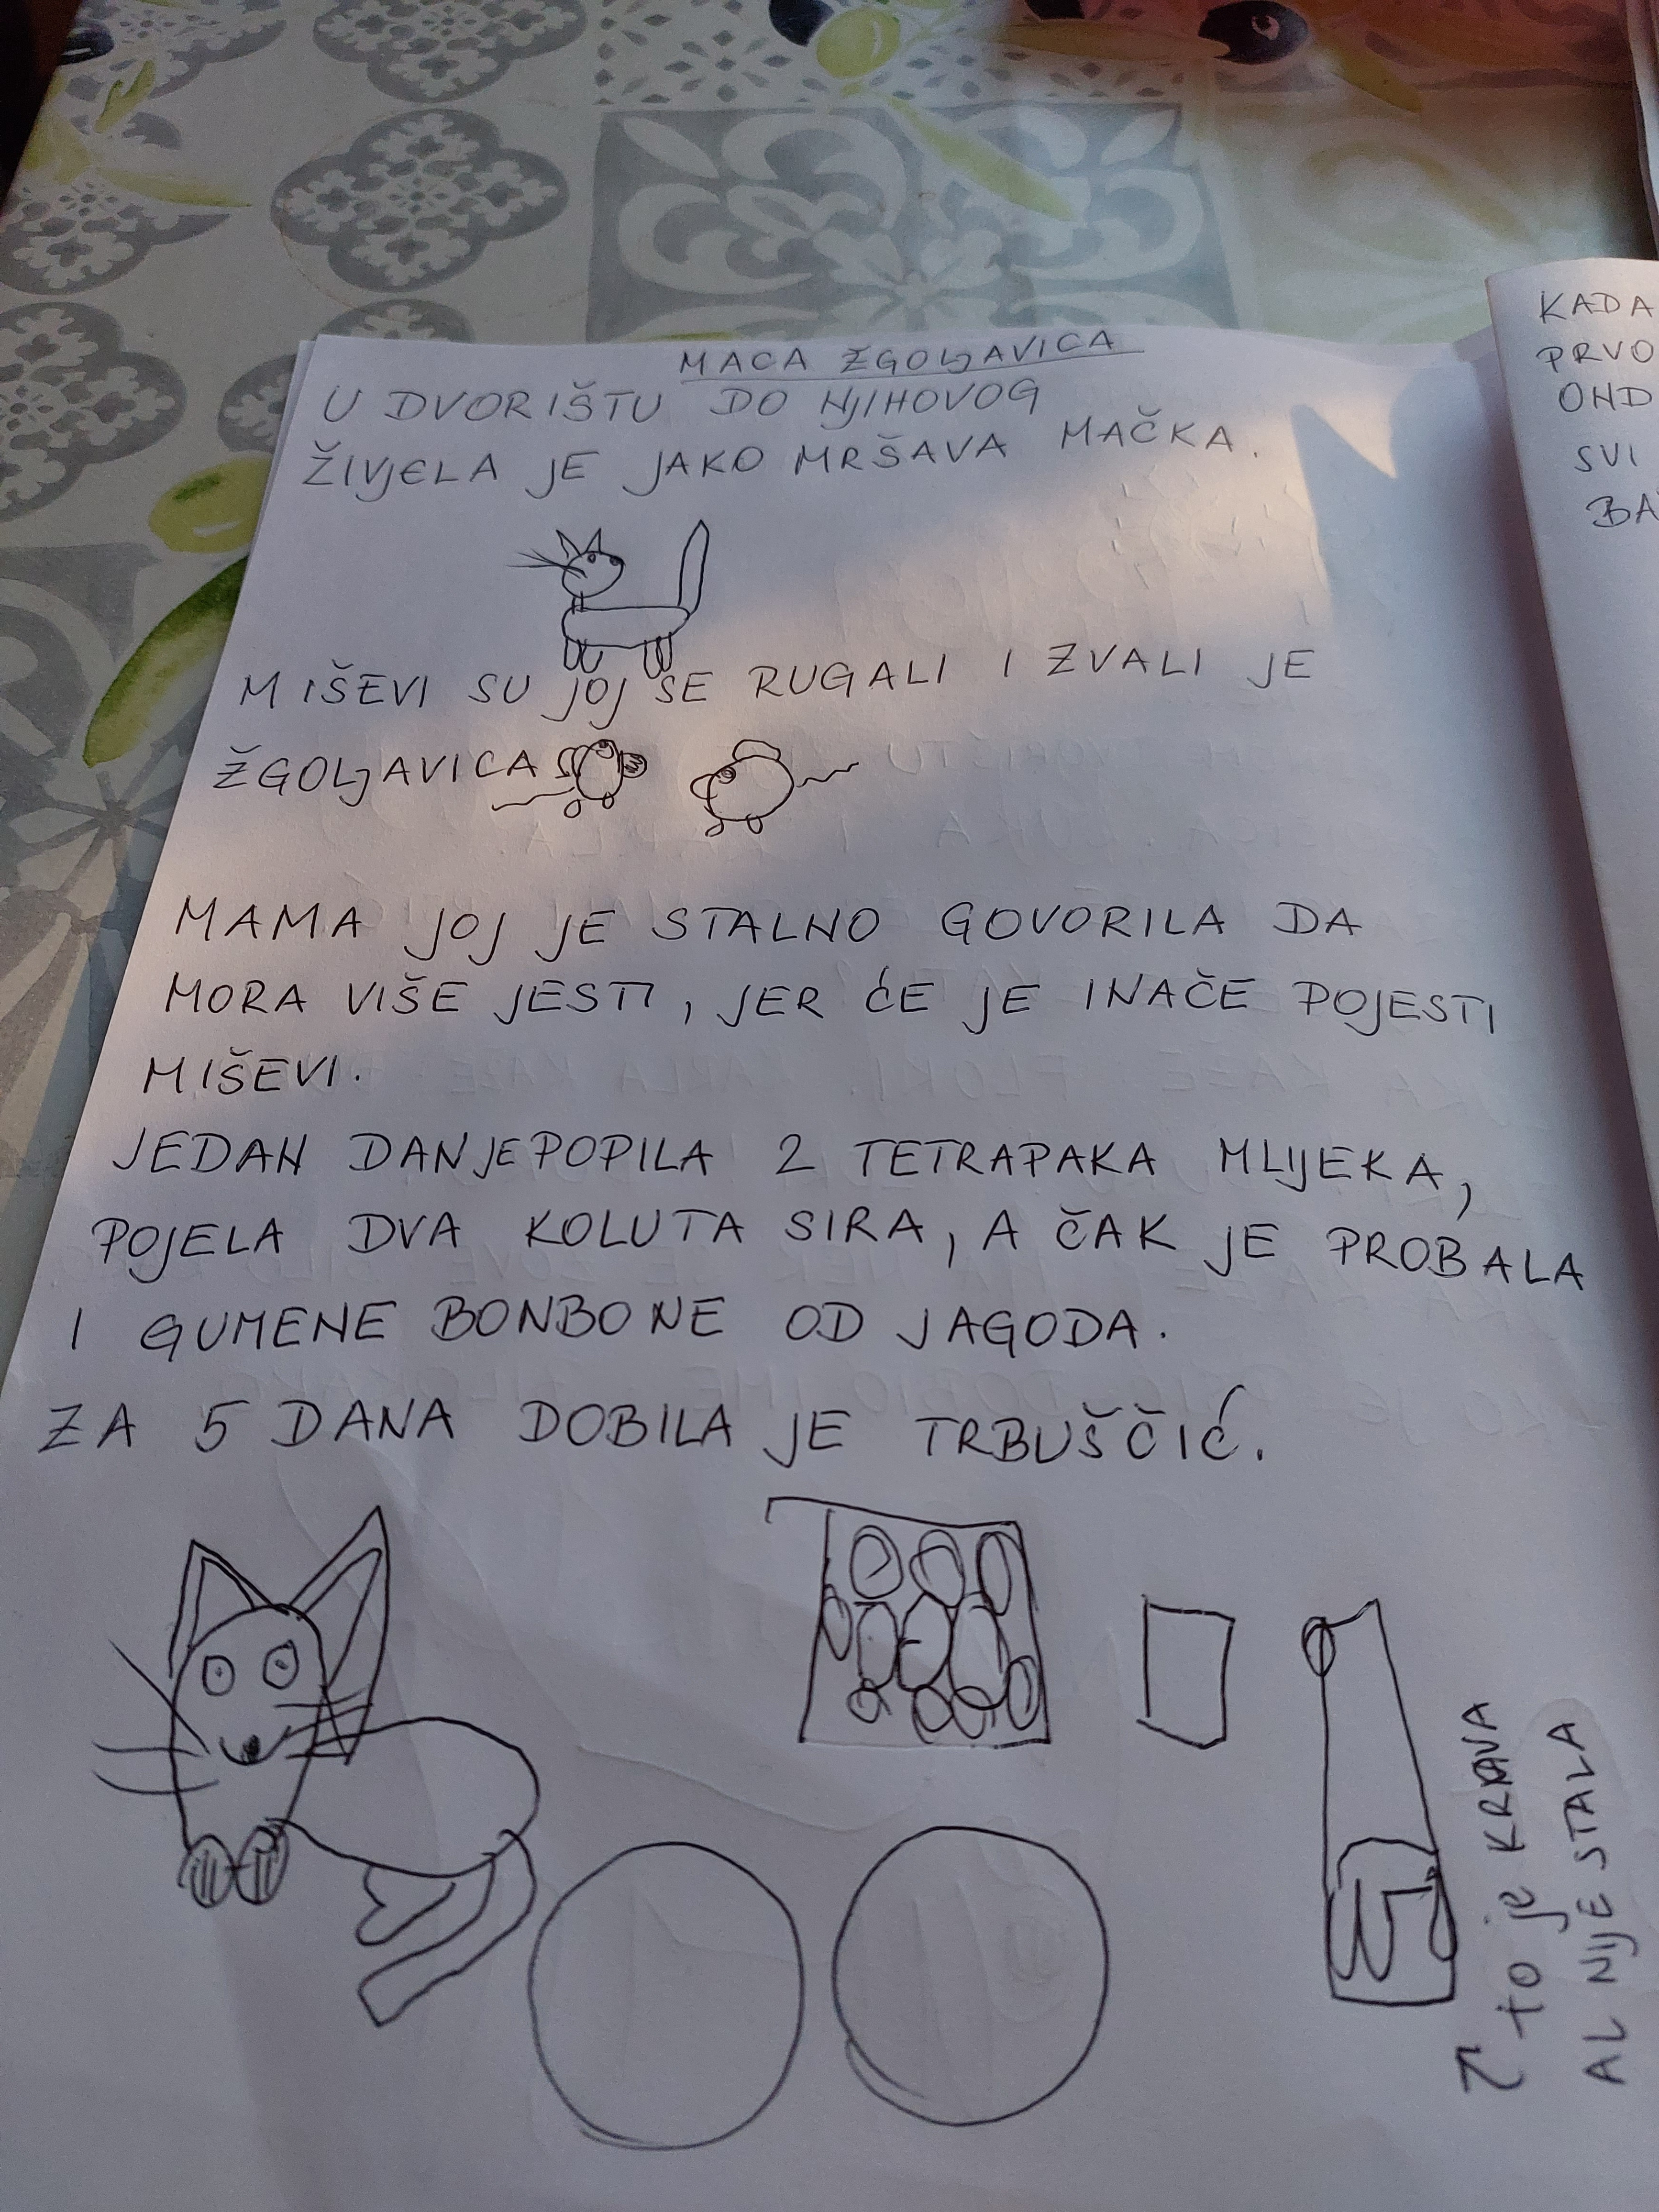 MACA ŽGOLJAVICA
U DVORIŠTU DO NJIHOVOG
ŽIVJELA JE JAKO MRŠAVA MAČKA.
MIŠEVI SU JOJ SE RUGALI I ZVALI JE
ŽGOLJAVICA
MAMA JOJ JE STALNO GOVORILA DA
MORA VIŠE JESTI, JER ĆE JE INAČE POJESTI
MIŠEVI.
JEDAN DAN JE POPILA 2 TETRAPAKA MLIJEKA,
POJELA DVA KOLUTA SIRA, A ČAK JE PROBALA
I GUMENE BONBONE OD JAGODA.
ZA 5 DANA DOBILA JE TRBUŠČIĆ.
to je KRAVA
AL NIJE STALA
KADA
PRVO
OND
SVI
BA